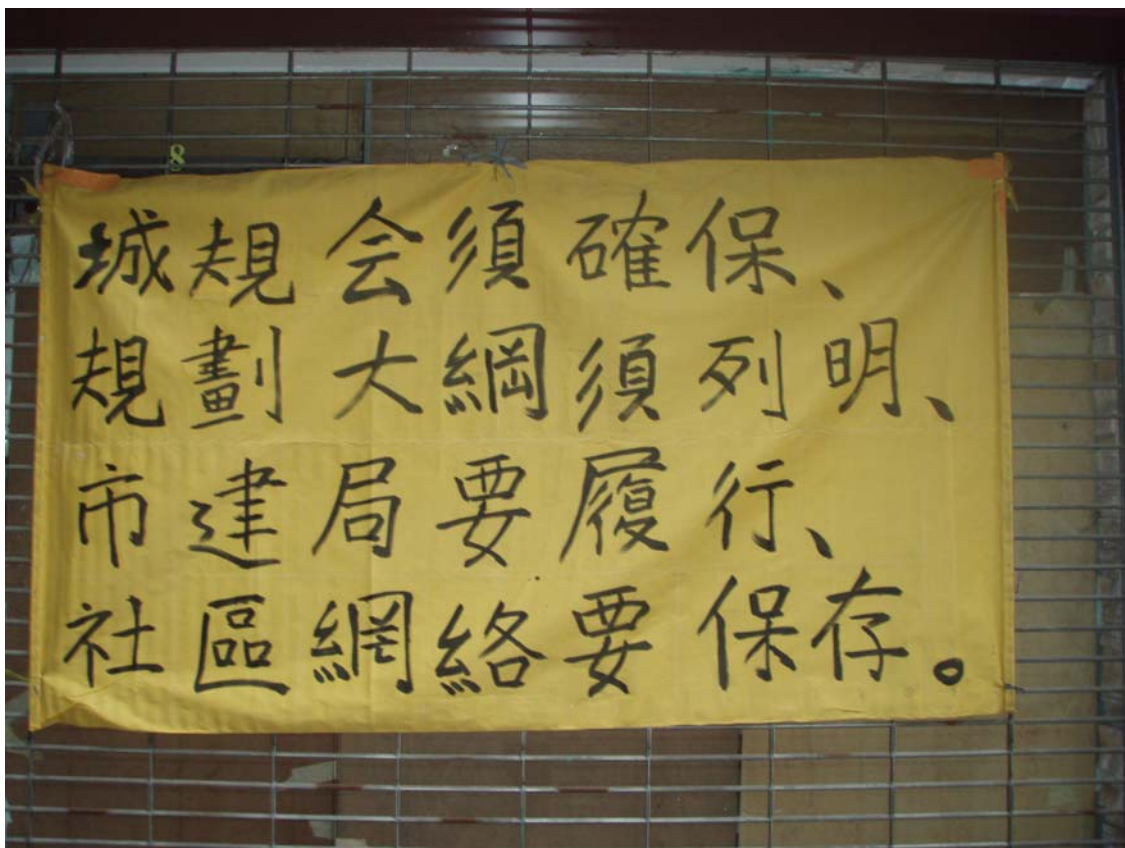 8
城規会須確保、
規劃大綱須列明、
市建局要履行、
社區網絡要保存。